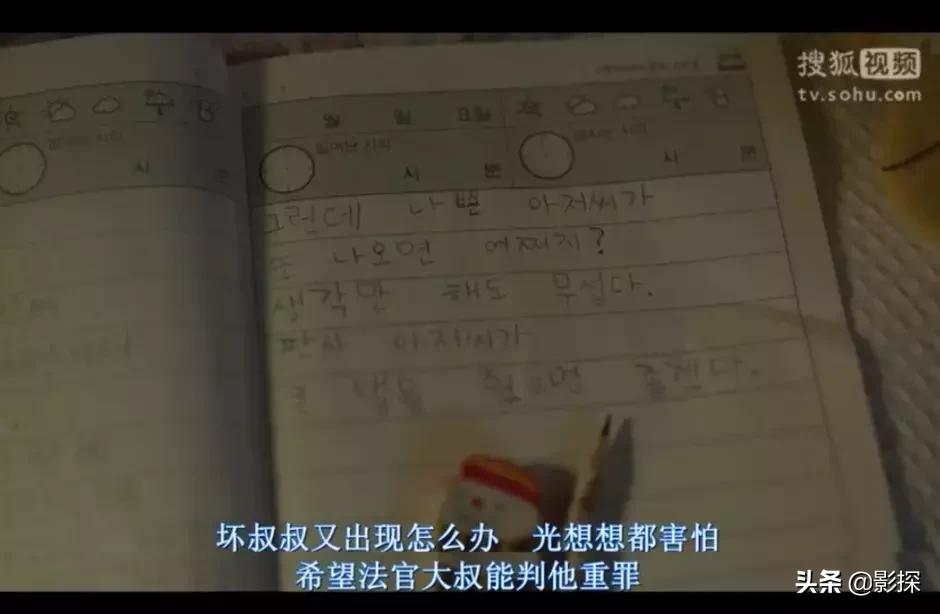 搜狐视频
tv.sohu.com
월 일 요일
시 분 시 분
그런데 나쁜 아저씨가
또 나오면 어쩌지?
생각만 해도 무섭다.
판사 아저씨가
坏叔叔又出现怎么办 光想想都害怕
希望法官大叔能判他重罪
头条 @影探